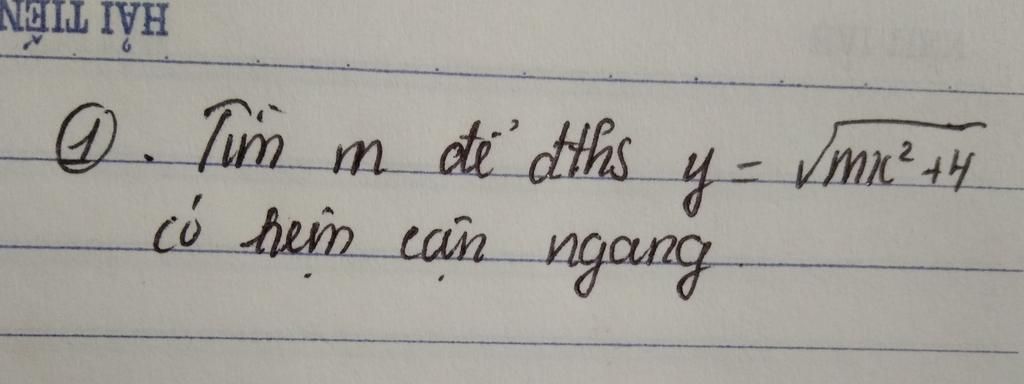 HẢI TIẾN
①. Tìm m để đths y = √mx² + 4
có tiệm cận ngang